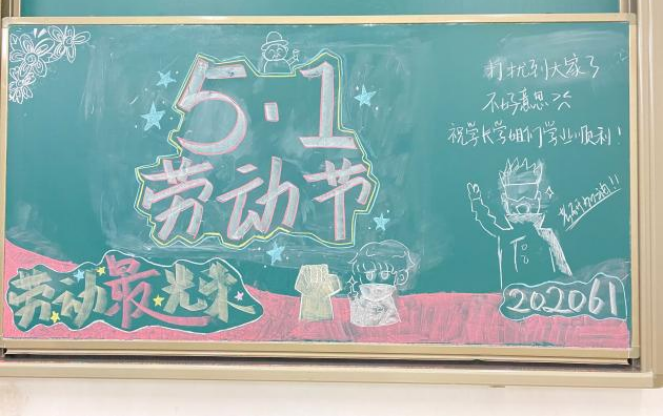 5·1
劳动节
劳动最光荣
打扰到大家了
不好意思
祝学长学姐们学业顺利！
信
202061